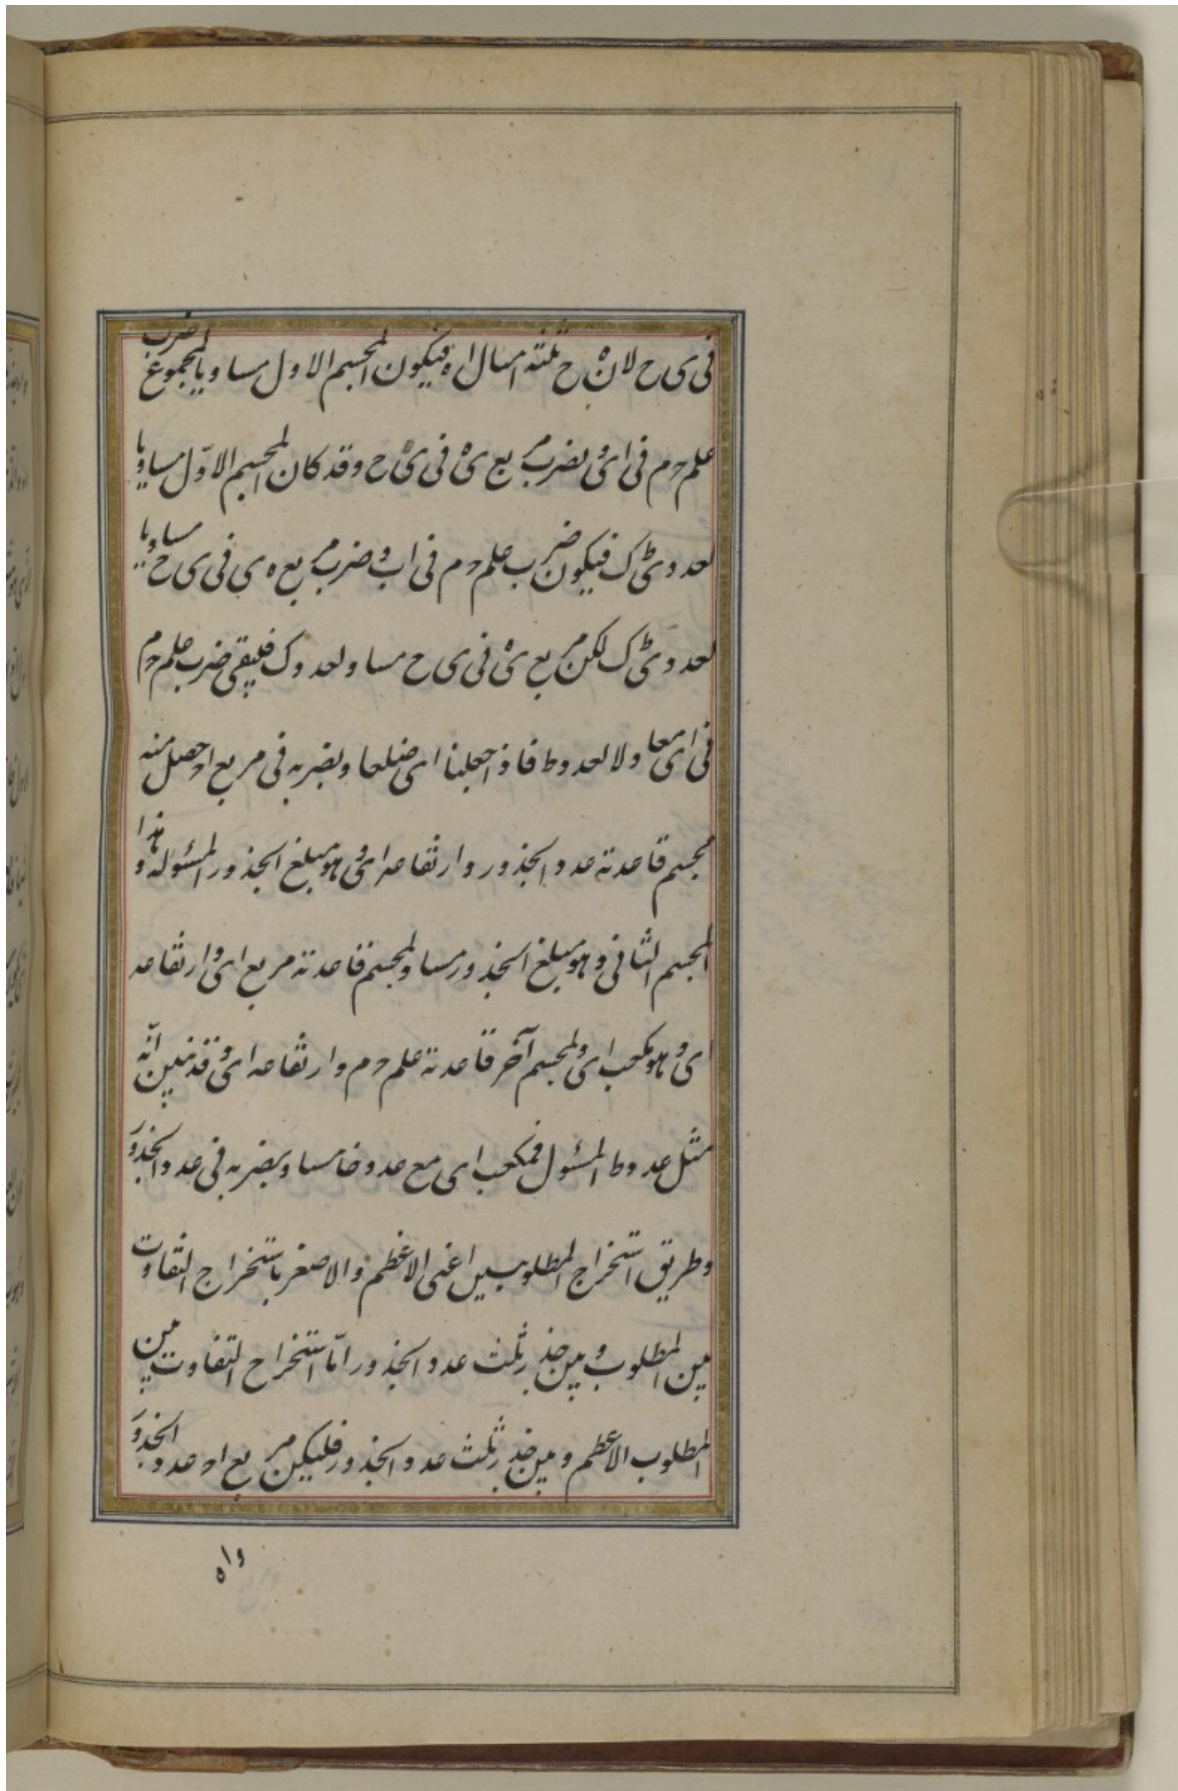 فى ى ح لان ه ح ثلثة امثال اه فيكون المجسم الاول مساويا لمجموع ضرب
علم حم فى اى وضرب مربع ى ه فى ى ح وقد كان المجسم الاول مساويا
لعدد ط ك فيكون ضرب علم حم فى اى وضرب مربع ه ى فى ى ح مساويا
لعدد ط ك لكن مربع ى ه فى ى ح مساو لعدد ك فيبقى ضرب علم حم
فى اى معا ولا لعدد ط فاذا جعلنا اى ضلعا وبضربه فى مربع اح حصل منه
مجسم قاعدته عدد الجذور وارتفاعه اى وهو مبلغ الجذور المسئولة وهذا
المجسم الثانى وهو مبلغ الجذور مساو لمجسم قاعدته مربع اى وارتفاعه
اى وهو مكعب اى ولمجسم آخر قاعدته علم حم وارتفاعه اى وقد تبين انّه
مثل عدد ط المسئول فمكعب اى مع عدد خا مساو بضربه فى عدد الجذور
وطريق استخراج المطلوبين اعنى الاعظم والاصغر باستخراج التفاوت
بين المطلوب وبين جذر ثلث عدد الجذور امّا استخراج التفاوت بين
المطلوب الاعظم وبين جذر ثلث عدد الجذور فليكن مربع اح عدد الجذور
واه